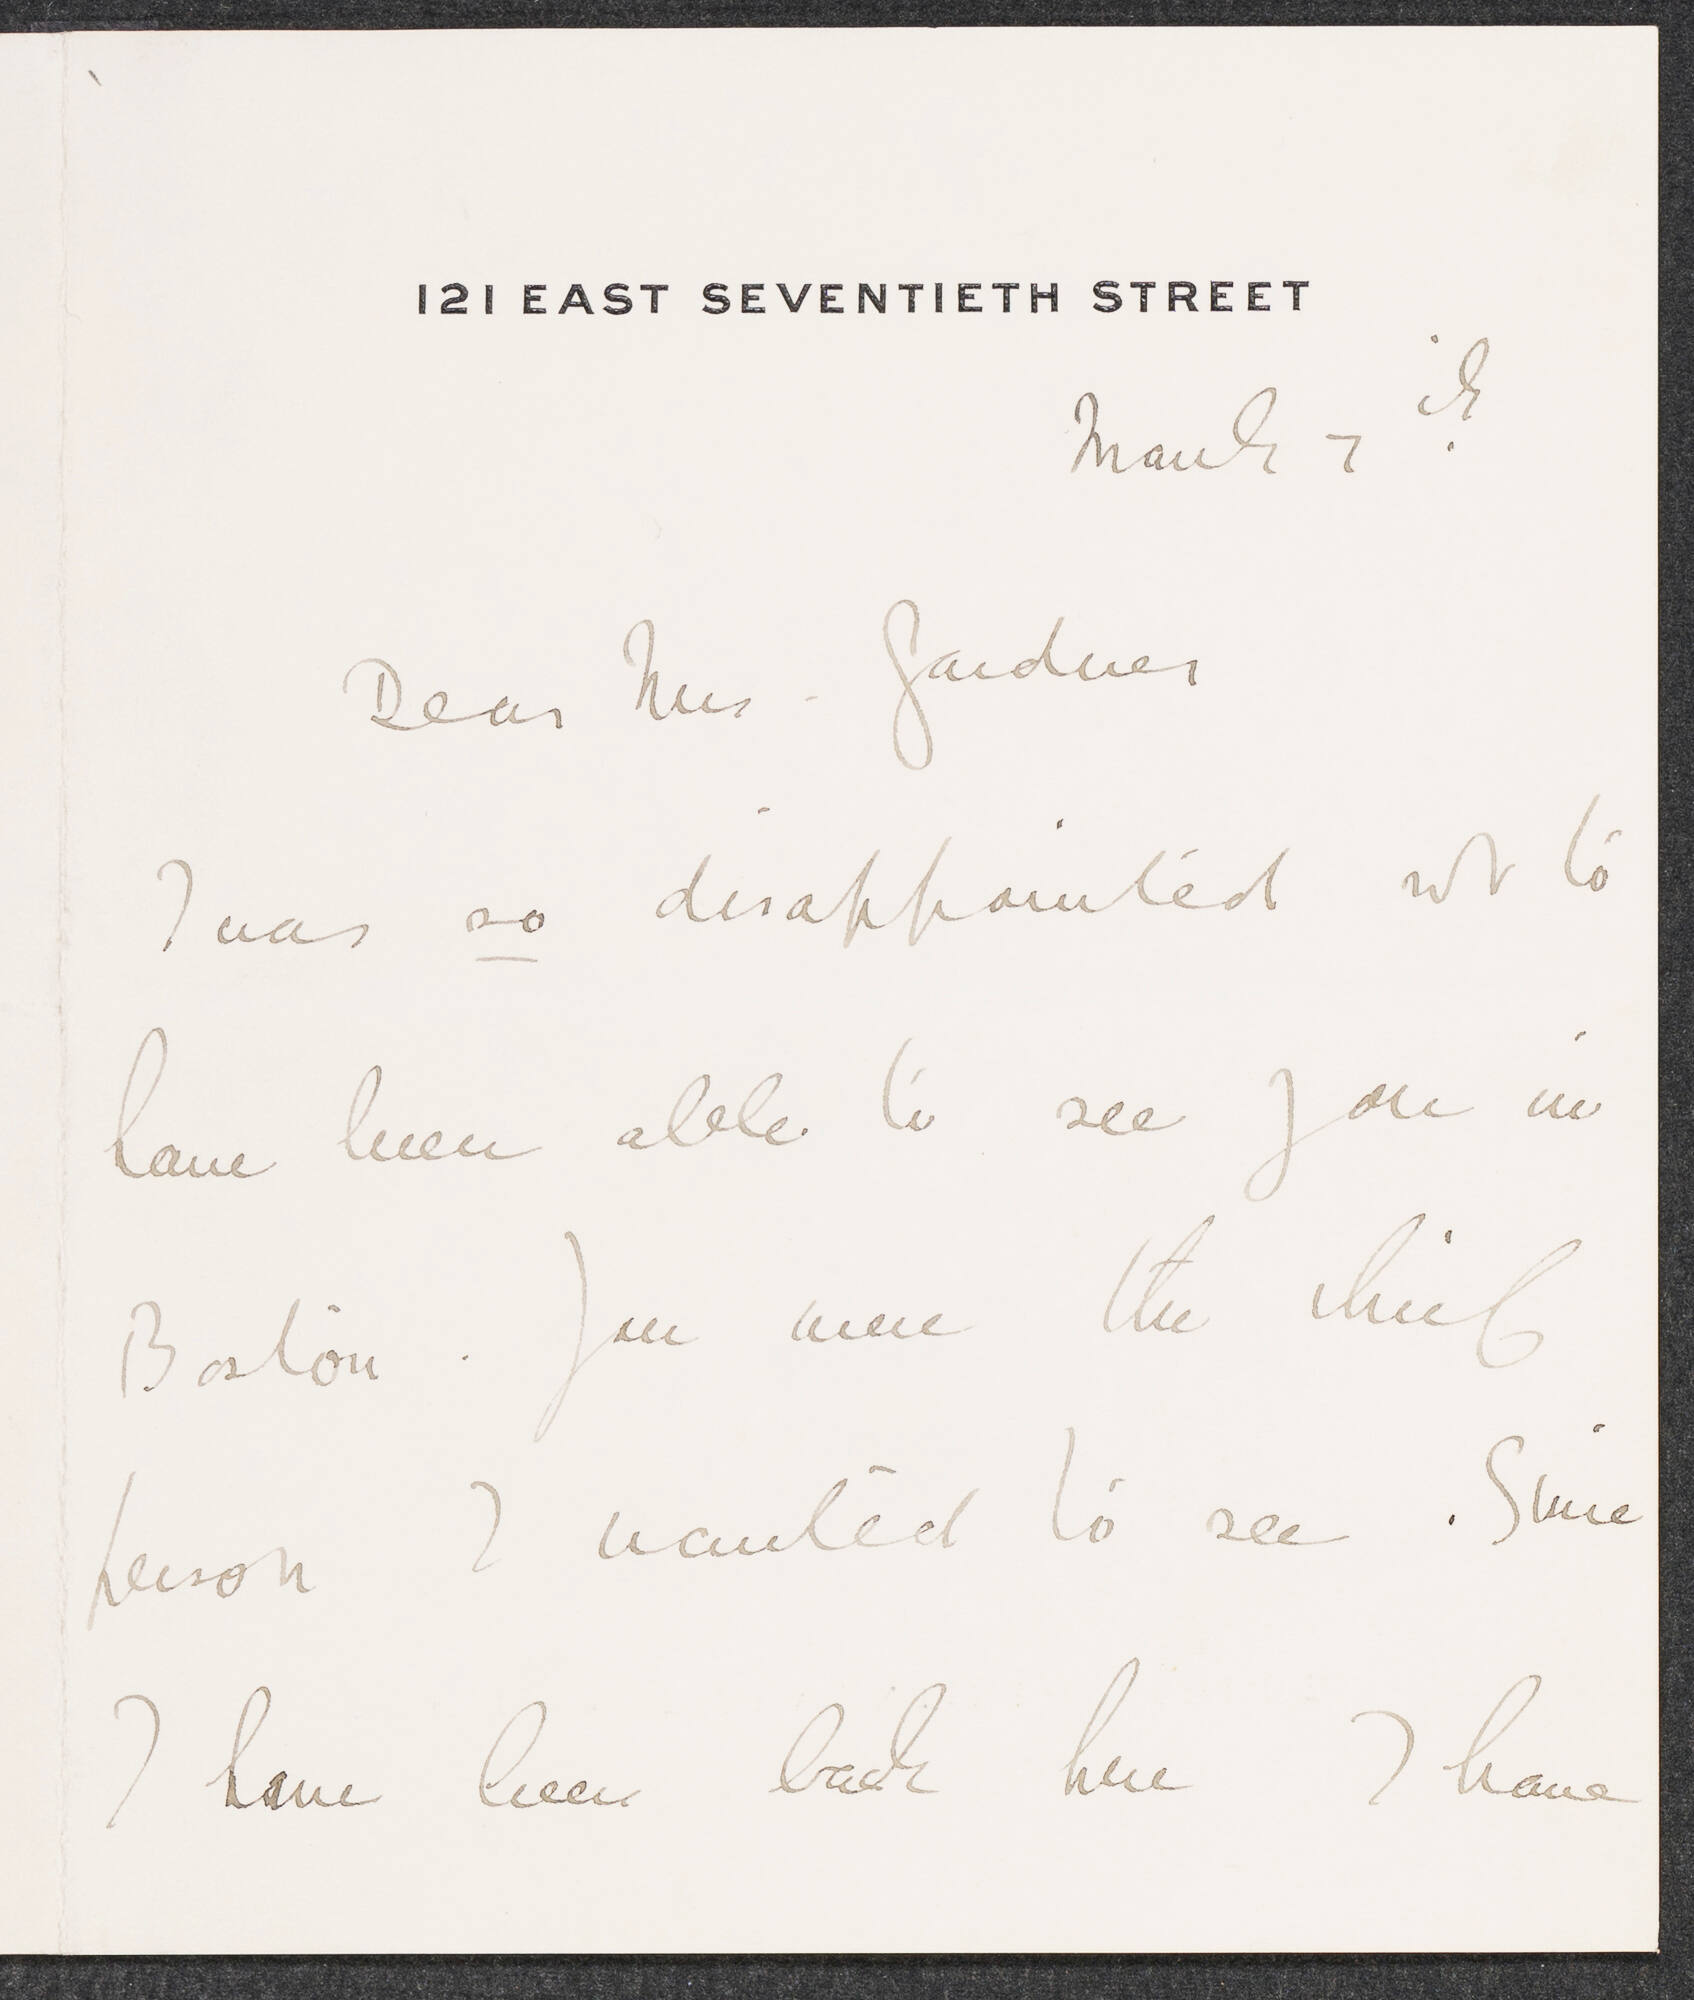 121 EAST SEVENTIETH STREET
March 7th.
Dear Mrs. Gardner
I was so disappointed not to
have been able to see you in
Boston. You were the chief
person I wanted to see. Since
I have been back here I have